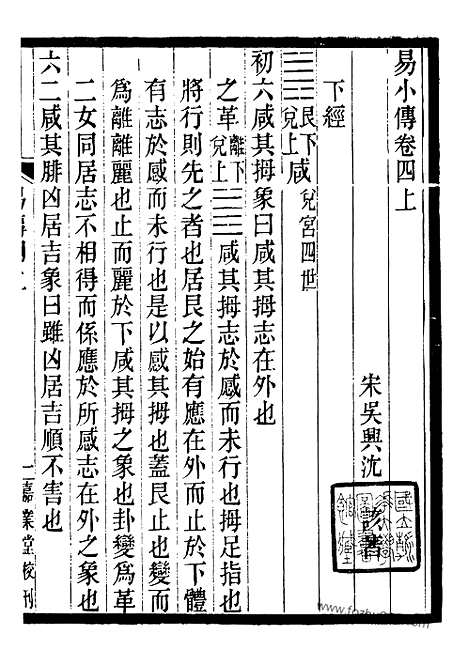 易小傳卷四上
宋吳興沈 該 著
下經
䷞艮下兌上咸 兌宮四世
初六咸其拇象曰咸其拇志在外也
之革離下兌上䷰咸其拇志於感而未行也拇足指也
將行則先之者也居艮之始有應在外而止於下體
有志於感而未行也是以感其拇也蓋艮止也變而
爲離離麗也止而麗於下咸其拇之象也卦變爲革
二女同居志不相得而係應於所感志在外之象也
六二咸其腓凶居吉象曰雖凶居吉順不害也
一 嘉業堂校刊